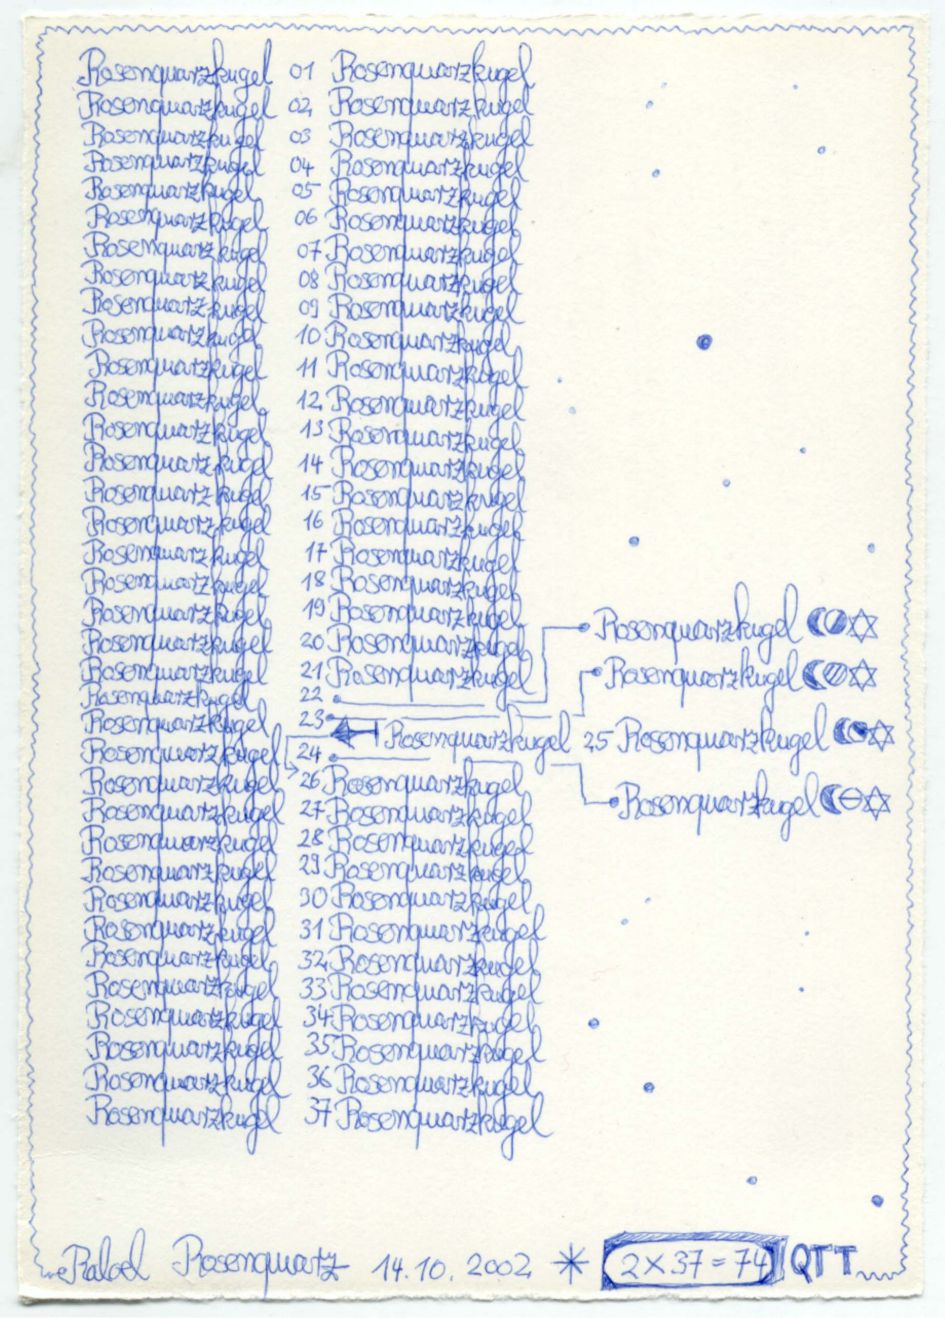 Rosenquarzkugel 01 Rosenquarzkugel
Rosenquarzkugel 02 Rosenquarzkugel
Rosenquarzkugel 03 Rosenquarzkugel
Rosenquarzkugel 04 Rosenquarzkugel
Rosenquarzkugel 05 Rosenquarzkugel
Rosenquarzkugel 06 Rosenquarzkugel
Rosenquarzkugel 07 Rosenquarzkugel
Rosenquarzkugel 08 Rosenquarzkugel
Rosenquarzkugel 09 Rosenquarzkugel
Rosenquarzkugel 10 Rosenquarzkugel
Rosenquarzkugel 11 Rosenquarzkugel
Rosenquarzkugel 12 Rosenquarzkugel
Rosenquarzkugel 13 Rosenquarzkugel
Rosenquarzkugel 14 Rosenquarzkugel
Rosenquarzkugel 15 Rosenquarzkugel
Rosenquarzkugel 16 Rosenquarzkugel
Rosenquarzkugel 17 Rosenquarzkugel
Rosenquarzkugel 18 Rosenquarzkugel
Rosenquarzkugel 19 Rosenquarzkugel
Rosenquarzkugel 20 Rosenquarzkugel
Rosenquarzkugel 21 Rosenquarzkugel
Rosenquarzkugel 22 Rosenquarzkugel
Rosenquarzkugel 23 Rosenquarzkugel
Rosenquarzkugel 25 Rosenquarzkugel
Rosenquarzkugel 24 Rosenquarzkugel
Rosenquarzkugel 26 Rosenquarzkugel
Rosenquarzkugel 27 Rosenquarzkugel
Rosenquarzkugel 28 Rosenquarzkugel
Rosenquarzkugel 29 Rosenquarzkugel
Rosenquarzkugel 30 Rosenquarzkugel
Rosenquarzkugel 31 Rosenquarzkugel
Rosenquarzkugel 32 Rosenquarzkugel
Rosenquarzkugel 33 Rosenquarzkugel
Rosenquarzkugel 34 Rosenquarzkugel
Rosenquarzkugel 35 Rosenquarzkugel
Rosenquarzkugel 36 Rosenquarzkugel
Rosenquarzkugel 37 Rosenquarzkugel
Rosenquartz 14.10.2002 * 2×37=74 QTT